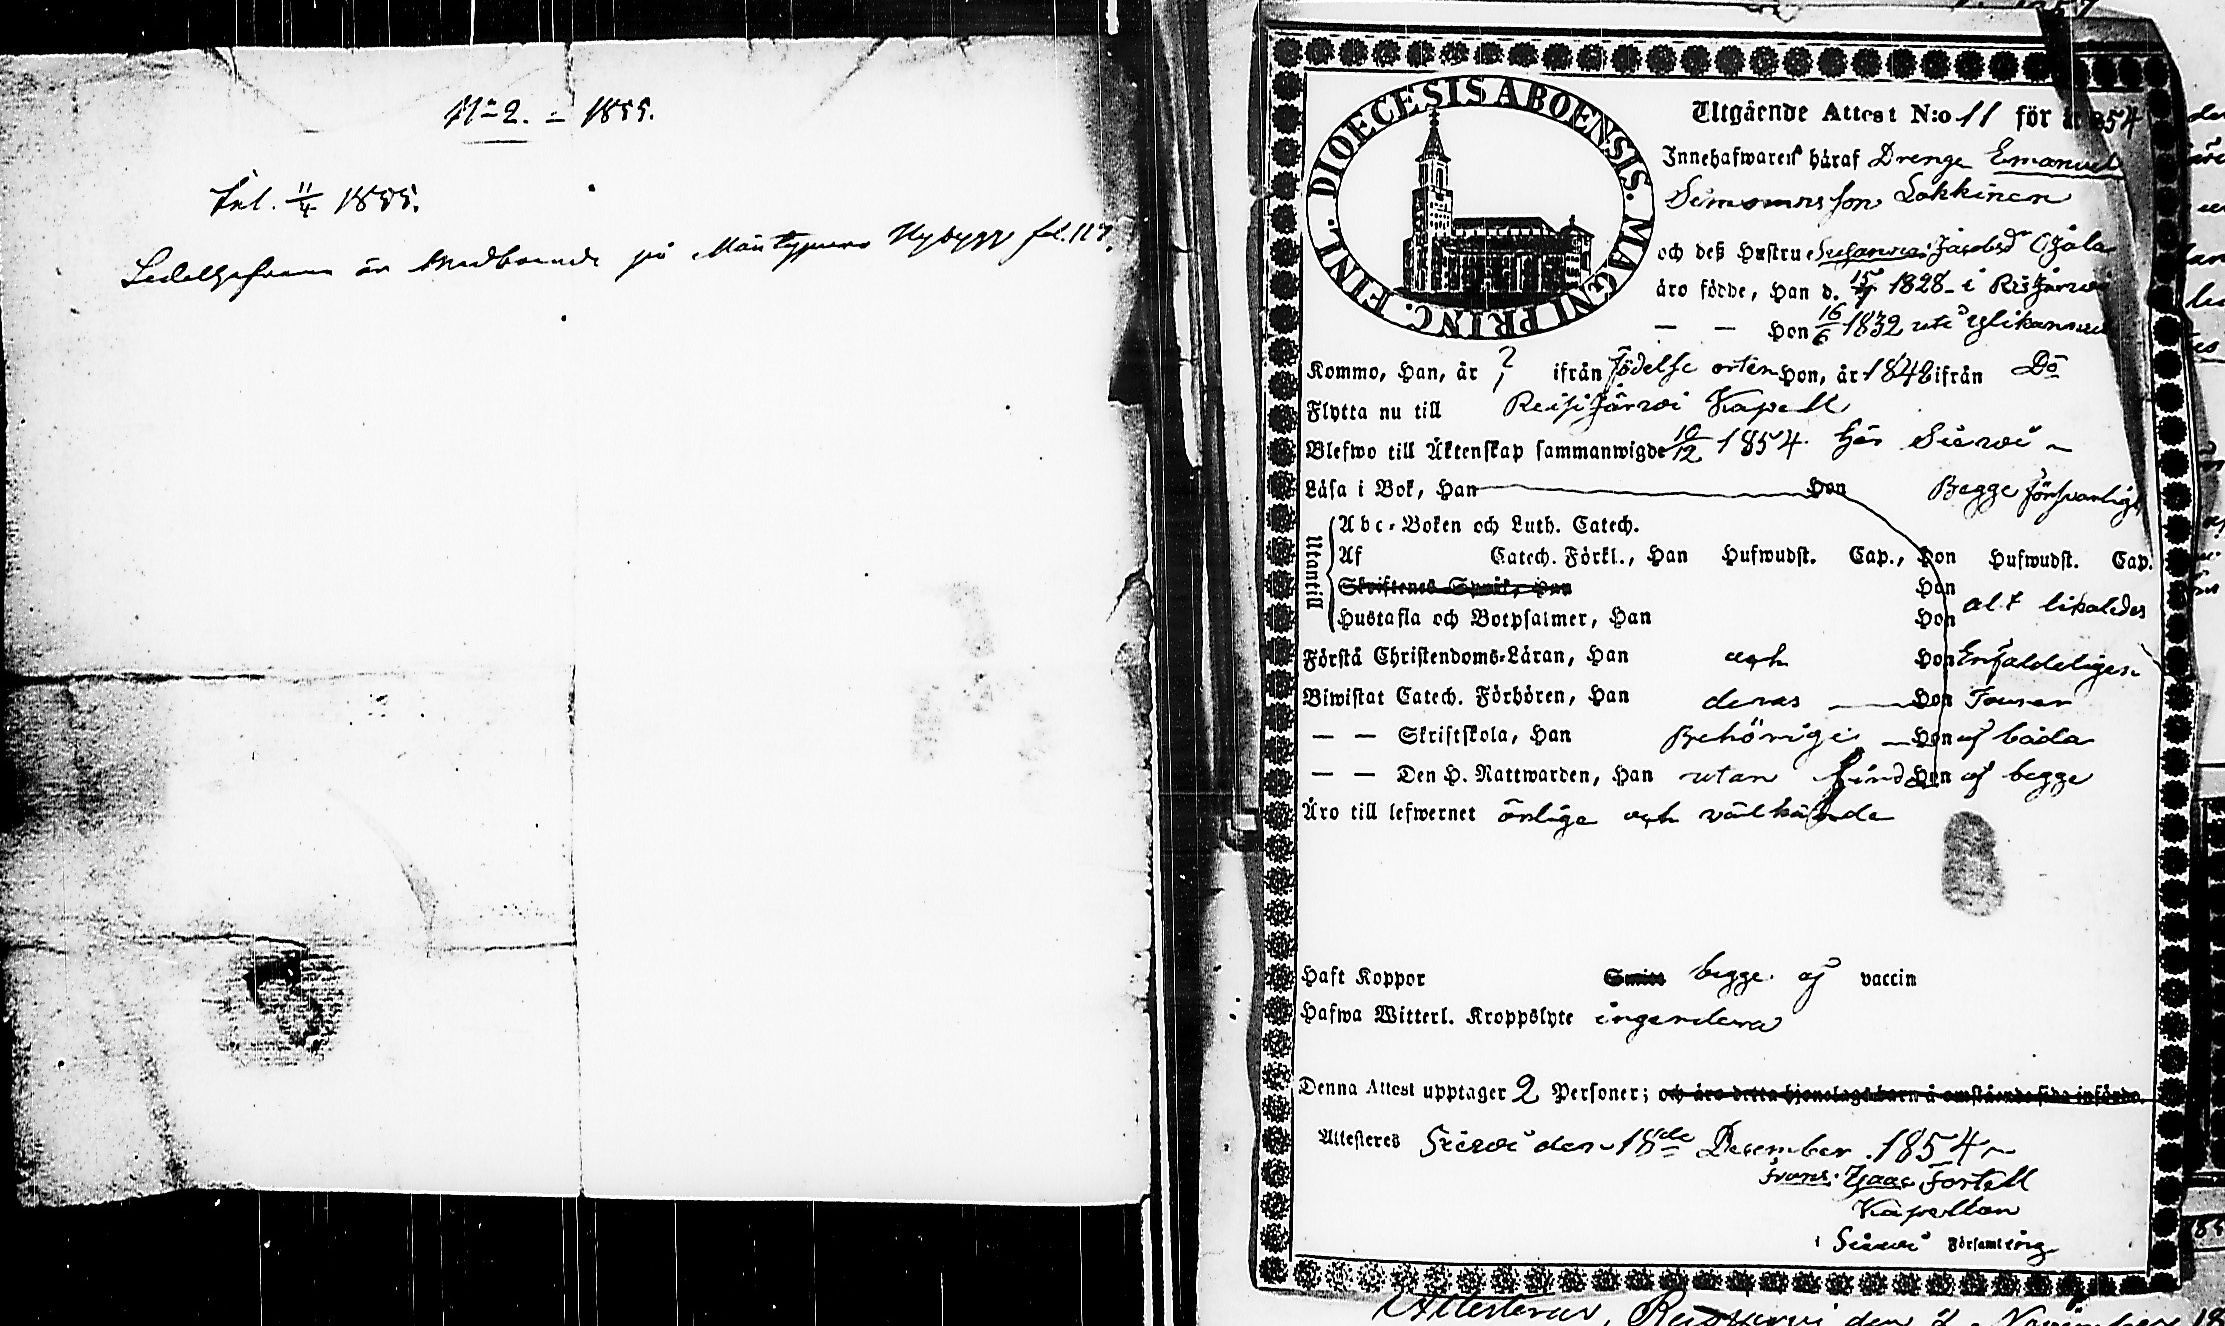 N:o 2. = 1855.
Inl. 11/4 1855.
är Medboende på Mäntyperä Nybygge fol. 117.
DIOECESIS ABOENSIS. MAGNI PRINC. FINL.
Utgående Attest N:o 11 för år 1854
Innehafwaren häraf Drengen Emanuel
Simonsson Lokkinen
och deß Hustru Susanna Jacobsdr Ojala
äro födde, Han d. 15/ 1828 i Reisjärwi
— — Hon 16/6 1832 uti Ylikannus
Kommo, Han, år ? ifrån födelse orten Hon, år 1848 ifrån Do
Flytta nu till Reisijärwi Kapell
Blefwo till Äktenskap sammanwigde 10/12 1854 här Siewi
Läsa i Bok, Han Hon Begge försvarligt
Utantill
Abc-Boken och Luth. Catech.
Af Catech. Förkl., Han Hufwudst. Cap., Hon Hufwudst. Cap.
Skriftenes Språk, Han Hon alt likaledes
Hustafla och Botpsalmer, Han Hon
Förstå Christendoms-Läran, Han och Hon Enfaldeligen
Biwistat Catech. Förhören, Han deras — Hon
— — Skriftskola, Han Behörige — Hon af båda
— — Den H. Nattwarden, Han utan hinder Hon af begge
Äro till lefwernet ärlige och välkände
Haft Koppor begge af vaccin
Hafwa Witterl. Kroppslyte ingendera
Denna Attest upptager 2 Personer; och äro detta hjonelags barn å omstående sida införde.
Attesteres Siewi den 18de December 1854
Frans Isaac Fortell
Kapellan
i Siewi Församling
Attesterar, Reisjerwi den 2 November